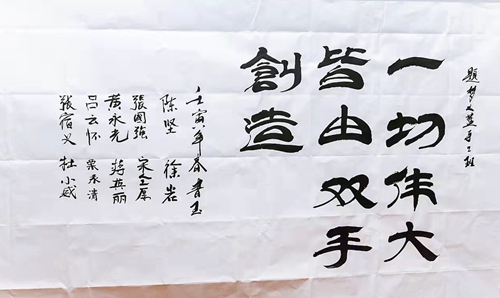 題梦之蓝手工班
一切伟大
皆由双手
創造
壬寅年春書
陈坚 徐岩
張国強 宋全厚
黄永光 蒋英丽
吕云怀 栗永清
張宿义 杜小威